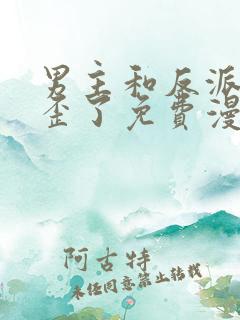 男主和反派
歪了免費漫
阿古特
未经同意禁止转载